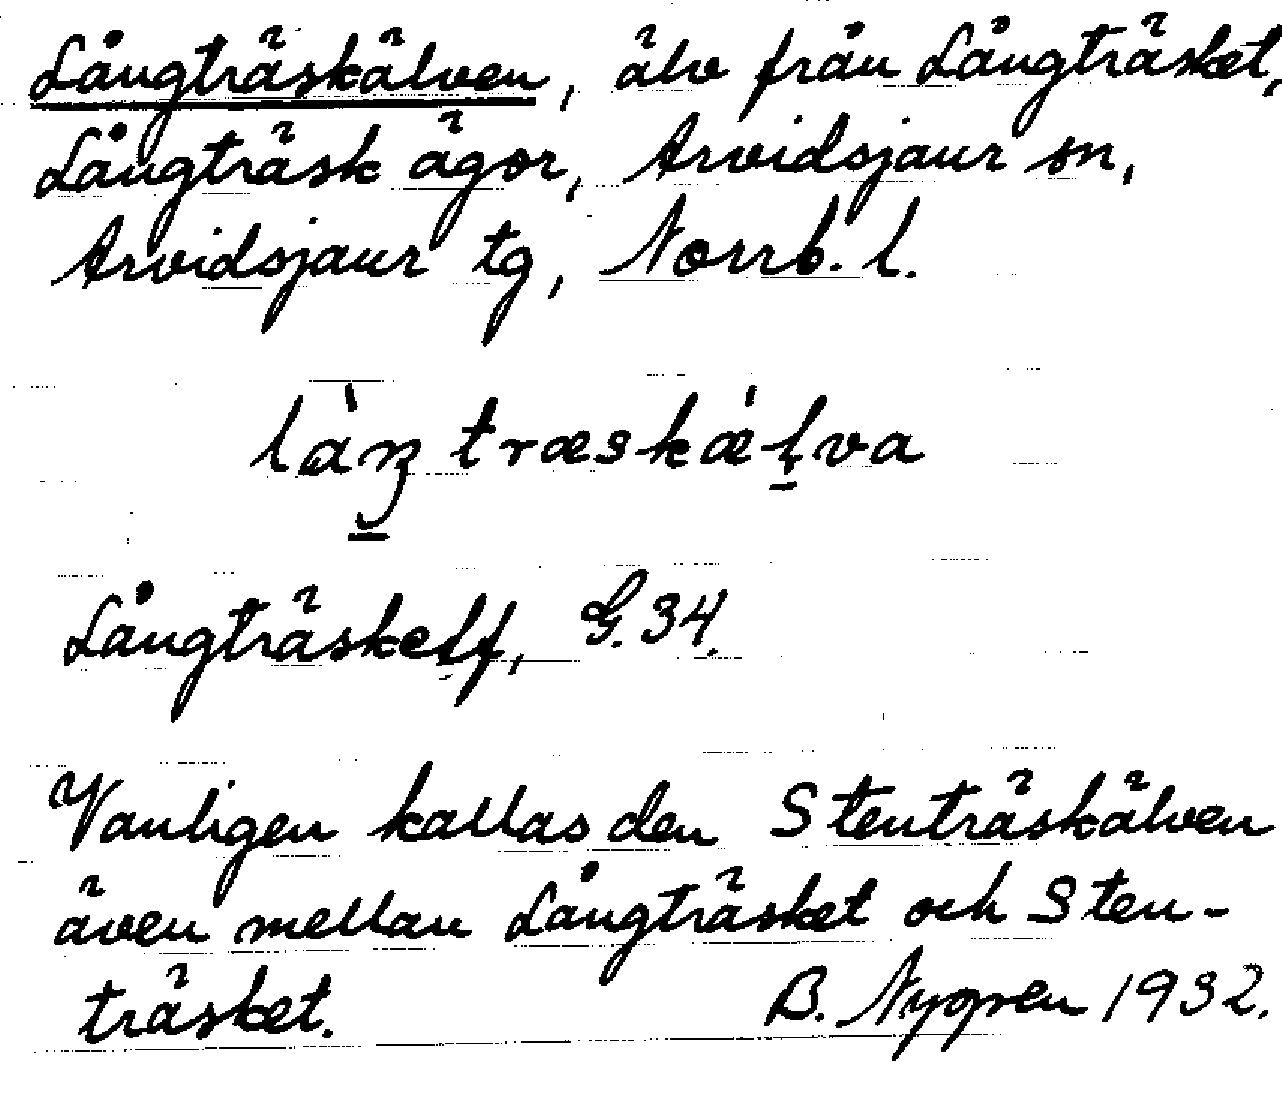 Långträskälven, älv från Långträsket,
Långträsk ägor, Arvidsjaur sn,
Arvidsjaur tg, Norrb. l.
làŋtræskæ̀lva
Långträskelf, G. 34.
Vanligen kallas den Stenträskälven
även mellan Långträsket och Sten-
träsket. B. Nygren 1932.